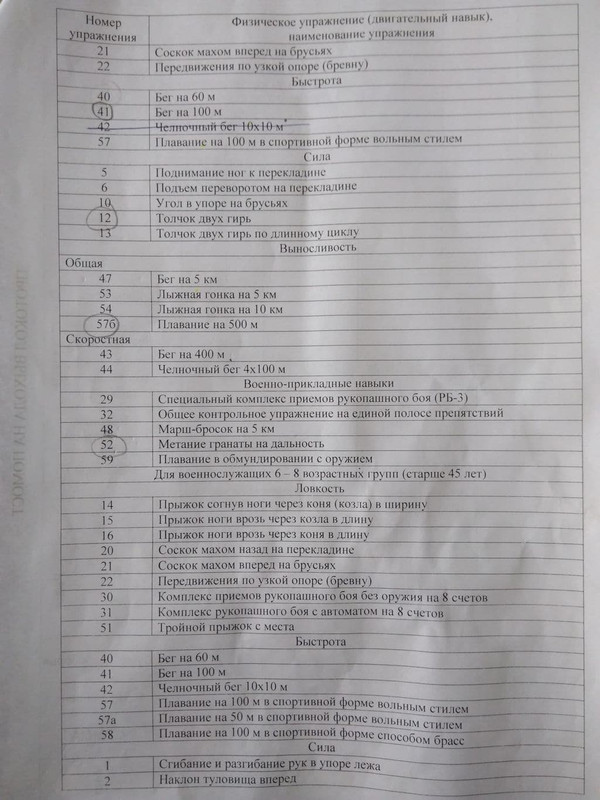 Номер упражнения Физическое упражнение (двигательный навык), наименование упражнения
21 Соскок махом вперед на брусьях
22 Передвижения по узкой опоре (бревну)
Быстрота
40 Бег на 60 м
41 Бег на 100 м
42 Челночный бег 10х10 м
57 Плавание на 100 м в спортивной форме вольным стилем
Сила
5 Поднимание ног к перекладине
6 Подъем переворотом на перекладине
10 Угол в упоре на брусьях
12 Толчок двух гирь
13 Толчок двух гирь по длинному циклу
Выносливость
Общая
47 Бег на 5 км
53 Лыжная гонка на 5 км
54 Лыжная гонка на 10 км
57б Плавание на 500 м
Скоростная
43 Бег на 400 м
44 Челночный бег 4х100 м
Военно-прикладные навыки
29 Специальный комплекс приемов рукопашного боя (РБ-3)
32 Общее контрольное упражнение на единой полосе препятствий
48 Марш-бросок на 5 км
52 Метание гранаты на дальность
59 Плавание в обмундировании с оружием
Для военнослужащих 6 – 8 возрастных групп (старше 45 лет)
Ловкость
14 Прыжок согнув ноги через коня (козла) в ширину
15 Прыжок ноги врозь через козла в длину
16 Прыжок ноги врозь через коня в длину
20 Соскок махом назад на перекладине
21 Соскок махом вперед на брусьях
22 Передвижения по узкой опоре (бревну)
30 Комплекс приемов рукопашного боя без оружия на 8 счетов
31 Комплекс рукопашного боя с автоматом на 8 счетов
51 Тройной прыжок с места
Быстрота
40 Бег на 60 м
41 Бег на 100 м
42 Челночный бег 10х10 м
57 Плавание на 100 м в спортивной форме вольным стилем
57а Плавание на 50 м в спортивной форме вольным стилем
58 Плавание на 100 м в спортивной форме способом брасс
Сила
1 Сгибание и разгибание рук в упоре лежа
2 Наклон туловища вперед